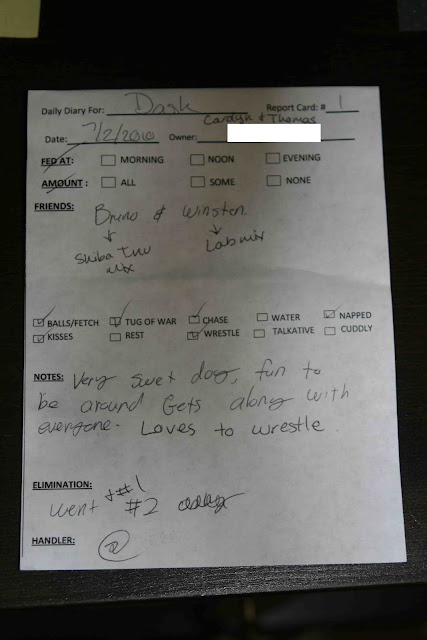 Daily Diary For: Dash Report Card: # 1
Carolyn & Thomas
Date: 7/2/2010 Owner:
FED AT: MORNING NOON EVENING
AMOUNT: ALL SOME NONE
FRIENDS: Bruno & Winston.
Shiba Inu Lab mix
mix
BALLS/FETCH TUG OF WAR CHASE WATER NAPPED
KISSES REST WRESTLE TALKATIVE CUDDLY
NOTES: Very swet dog, fun to
be around Gets along with
everyone. Loves to wrestle.
ELIMINATION:
went + #1
#2
HANDLER: